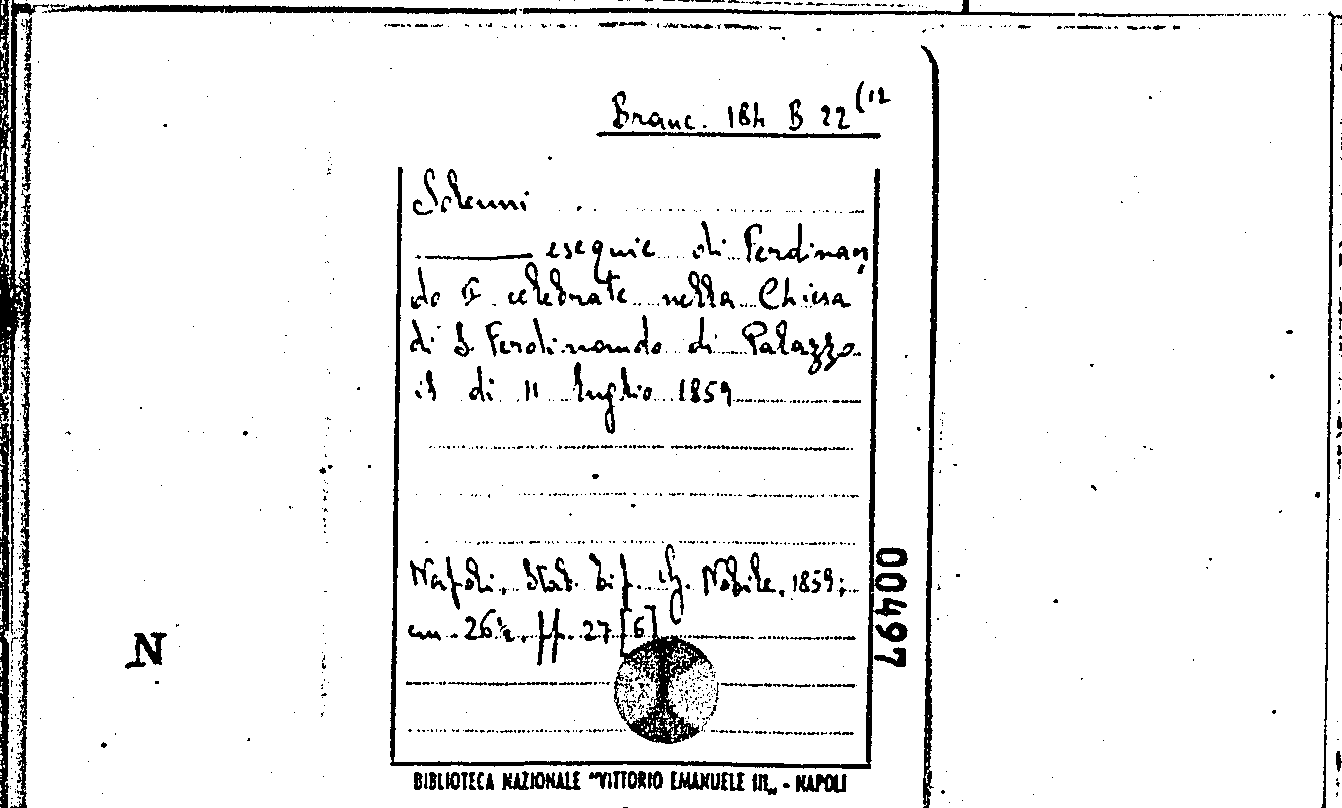 Branc. 184 B 22 (12
Solenni
esequie di Ferdinan
do II celebrate nella Chiesa
di S. Ferdinando di Palazzo
il di 11 luglio 1859
Napoli, Stab. Tip. G. Nobile, 1859;
cm. 26½, pp. 27 [6]
00497
N
BIBLIOTECA NAZIONALE "VITTORIO EMANUELE III„ - NAPOLI